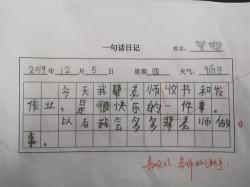 一句话日记
姓名：
2019年12月5日 星期四 天气：
今天我帮老师收书和发
作业，是很快乐的一件事。
以后我会多多帮老师做
事。
老师的小助手